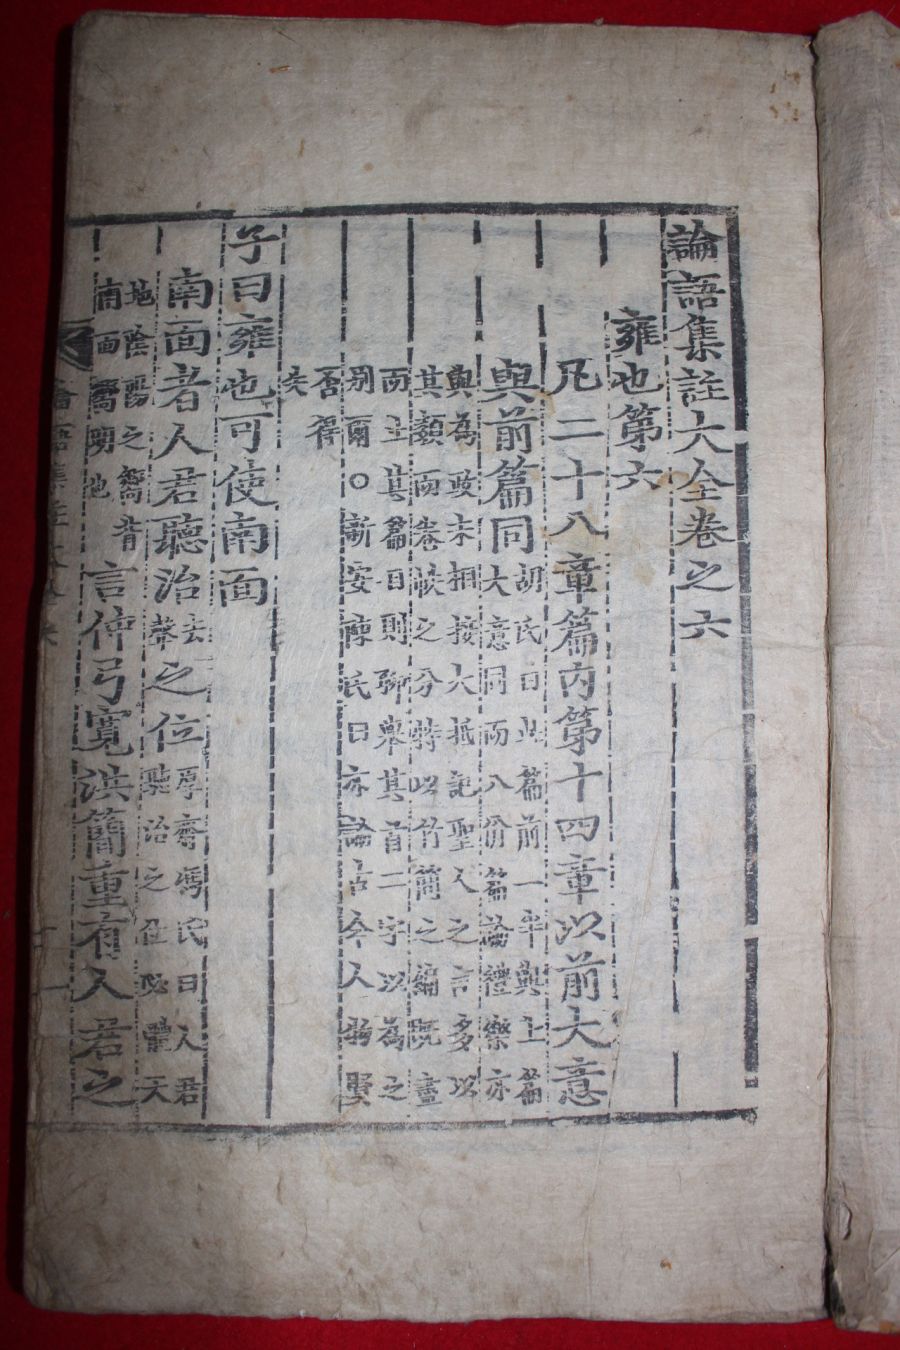 論語集註大全卷之六
雍也第六
凡二十八章篇內第十四章以前大意
與前篇同胡氏曰此篇前一半與上篇
大意同而八佾篇論禮樂亦
與為政末相接大抵記聖人之言多以
其類而卷帙之分特以竹簡之編既盡
而止其篇目則聊舉其首二字以為之
別爾○新安陳氏曰亦論古今人物賢
否得
失
子曰雍也可使南面
南面者人君聽治去聲之位厚齋馮氏曰人君
聽治之位必體天
地陰陽之嚮背
南面嚮明也言仲弓寬洪簡重有人君之